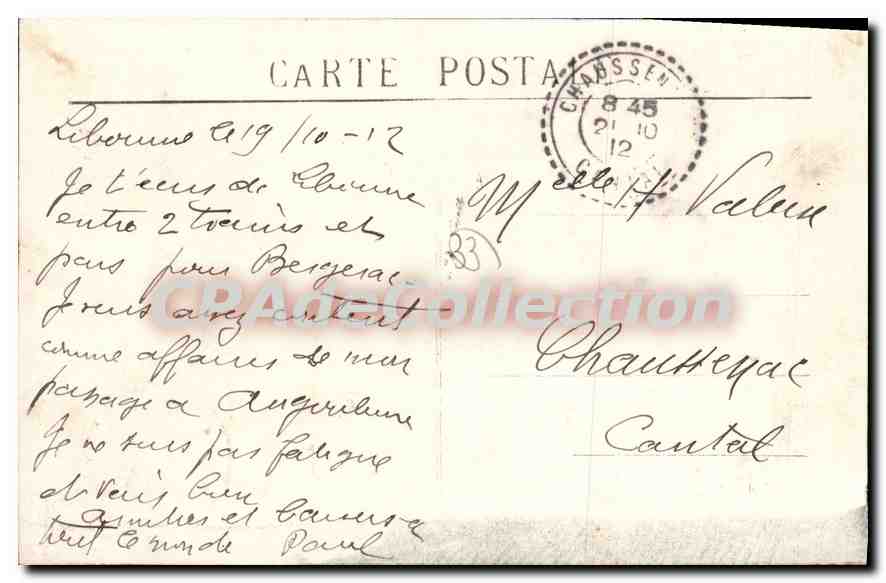 CARTE POSTA
CHAUSSEN
8 45
21 10
12
Libourne le 19/10-12
Je t'écris de Libourne
entre 2 trains et
pars pour Bergerac
Je suis assez content
comme affaires de mon
passage a Angouleme
Je ne suis pas fatigué
et vais bien
Amitiés et baisers a
tout le monde Paul
83
Melle
Chaussenac
Cantal
CPAdeCollection